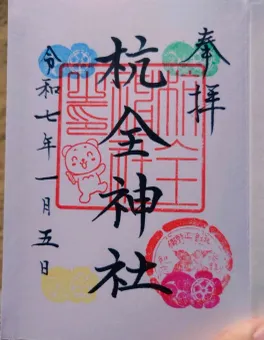 奉拝
杭全神社
令和七年一月五日